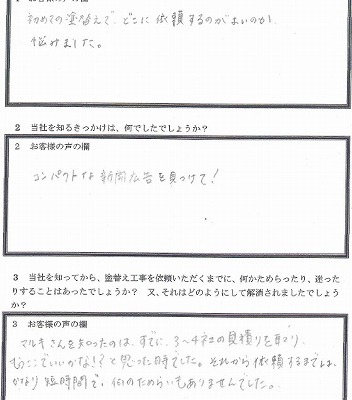 初めての塗替えで、どこに依頼するのがよいのか
悩みました。
2 当社を知るきっかけは、何でしたでしょうか？
2 お客様の声の欄
コンパクトな新聞広告を見つけて！
3 当社を知ってから、塗替え工事を依頼いただくまでに、何かためらったり、迷った
りすることはあったでしょうか？ 又、それはどのようにして解消されましたでしょう
か？
3 お客様の声の欄
マルキさんを知ったのは、すでに、3〜4社の見積りを取り、
もうここでいいかな！？と思った時でした。それから依頼するまでは、
かなり短時間で、何のためらいもありませんでした。